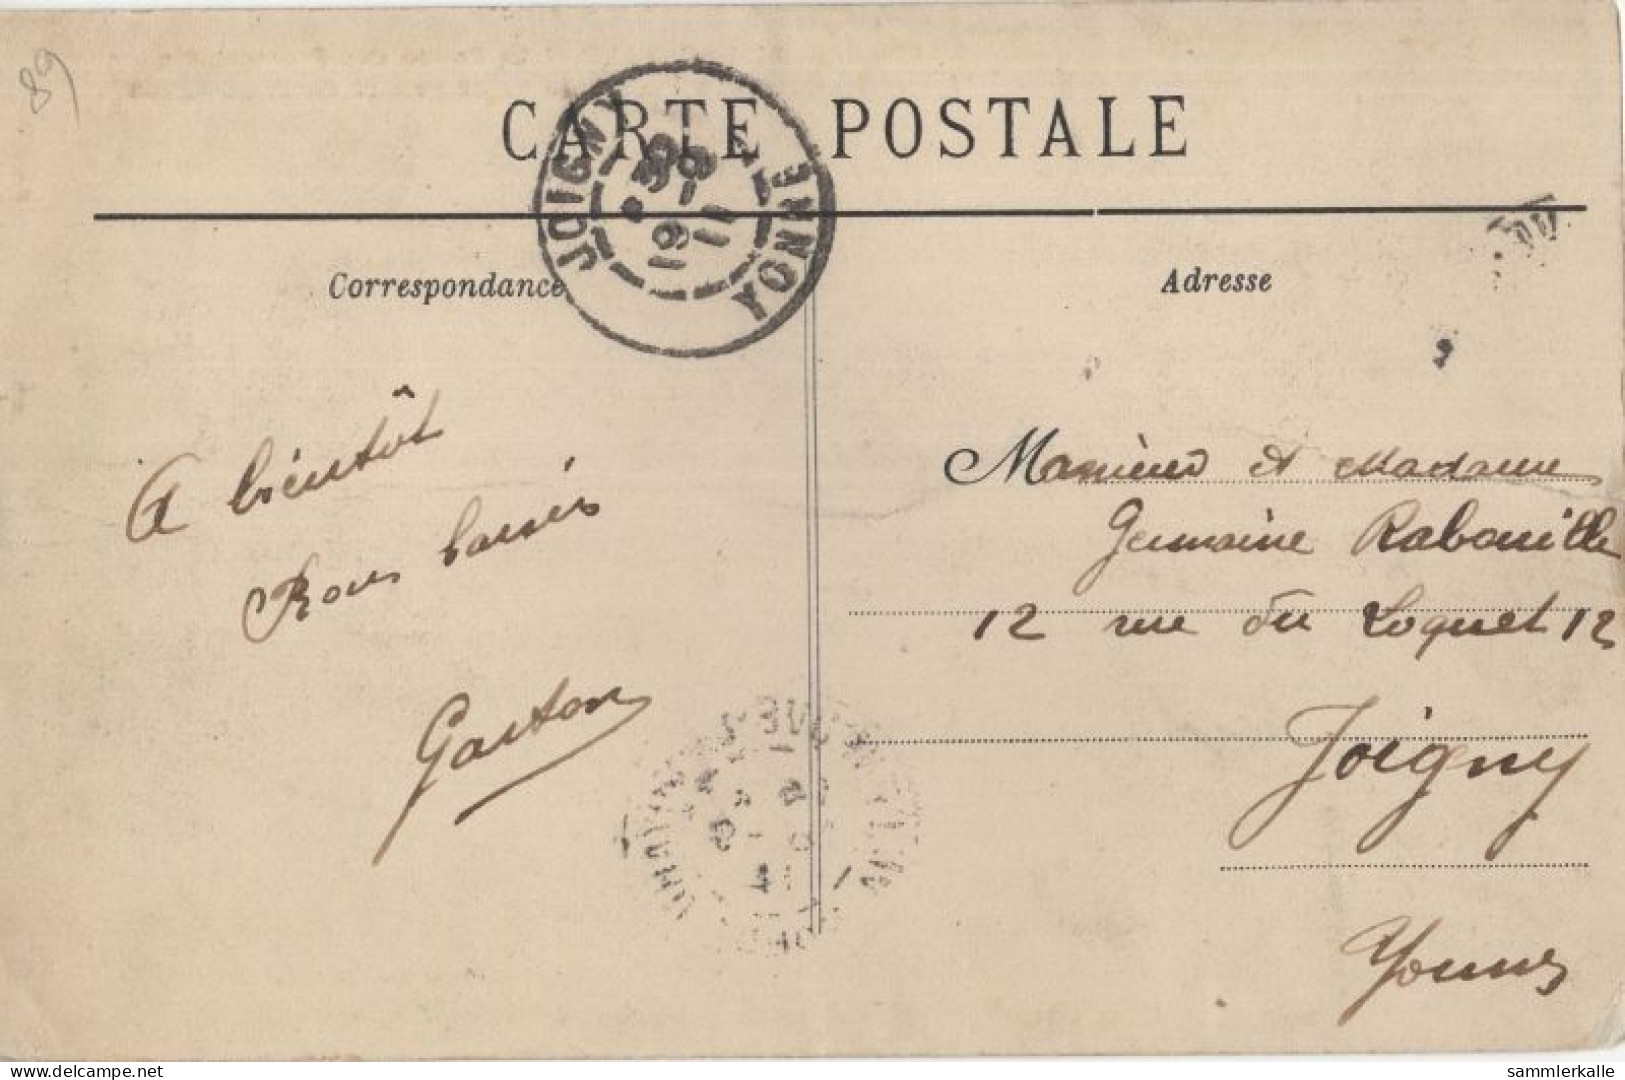 89
CARTE POSTALE
JOIGNY
YONNE
8 30
19-9
11
Correspondance
Adresse
A bientôt
Bons baisers
Gaston
Monsieur et Madame
Germaine Rabouille
12 rue du Loquet 12
Joigny
Yonne
https://www.delcampe.net
sammlerkalle